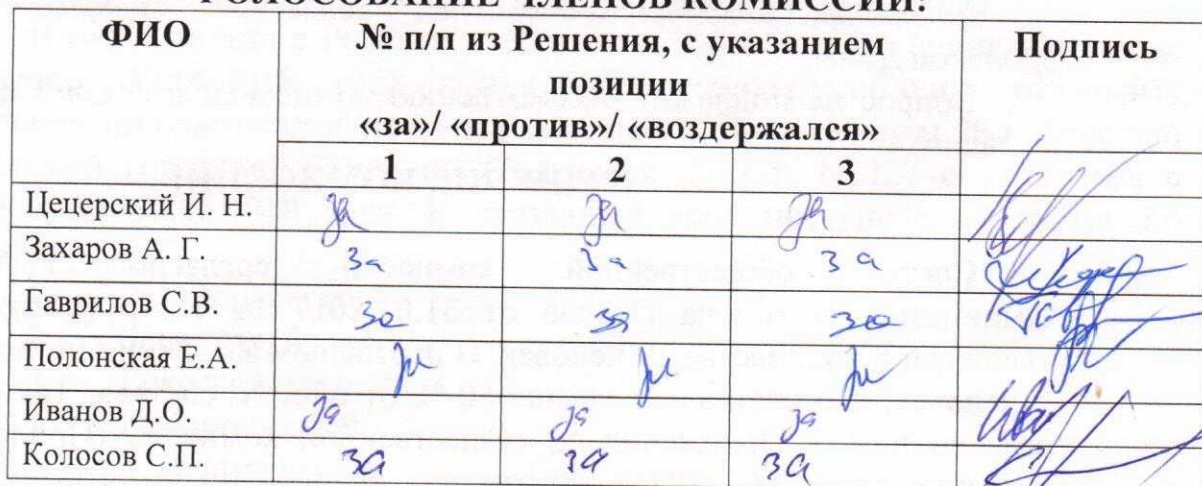 ГОЛОСОВАНИЕ ЧЛЕНОВ КОМИССИИ:
ФИО № п/п из Решения, с указанием Подпись
позиции
«за»/ «против»/ «воздержался»
1 2 3
Цецерский И. Н. за за за
Захаров А. Г. за за за
Гаврилов С.В. за за за
Полонская Е.А. за за за
Иванов Д.О. за за за
Колосов С.П. за за за